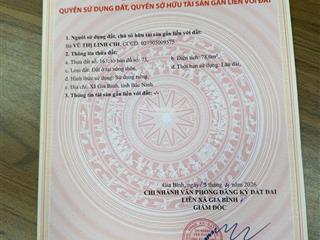 QUYỀN SỬ DỤNG ĐẤT, QUYỀN SỞ HỮU TÀI SẢN GẮN LIỀN VỚI ĐẤT
1. Người sử dụng đất, chủ sở hữu tài sản gắn liền với đất:
Bà VŨ THỊ LINH CHI, CCCD:
2. Thông tin thửa đất:
a. Thửa đất số: 163; tờ bản đồ số: 73 b. Diện tích: 78,0m²
c. Loại đất: Đất ở tại nông thôn. d. Thời hạn sử dụng: Lâu dài.
đ. Hình thức sử dụng: Sử dụng riêng.
e. Địa chỉ: Xã Gia Bình, tỉnh Bắc Ninh
3. Thông tin tài sản gắn liền với đất: -/-
Gia Bình, ngày 5 tháng 2026
CHI NHÁNH VĂN PHÒNG ĐĂNG KÝ ĐẤT ĐAI
LIÊN XÃ GIA BÌNH
GIÁM ĐỐC